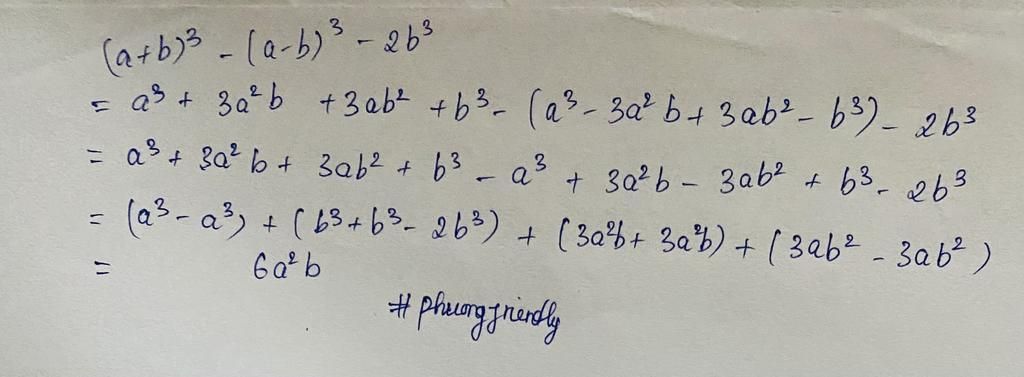 (a+b)³ - (a-b)³ - 2b³
= a³ + 3a²b + 3ab² + b³ - (a³ - 3a²b + 3ab² - b³) - 2b³
= a³ + 3a²b + 3ab² + b³ - a³ + 3a²b - 3ab² + b³ - 2b³
= (a³ - a³) + (b³ + b³ - 2b³) + (3a²b + 3a²b) + (3ab² - 3ab²)
= 6a²b
# phuongfriendly